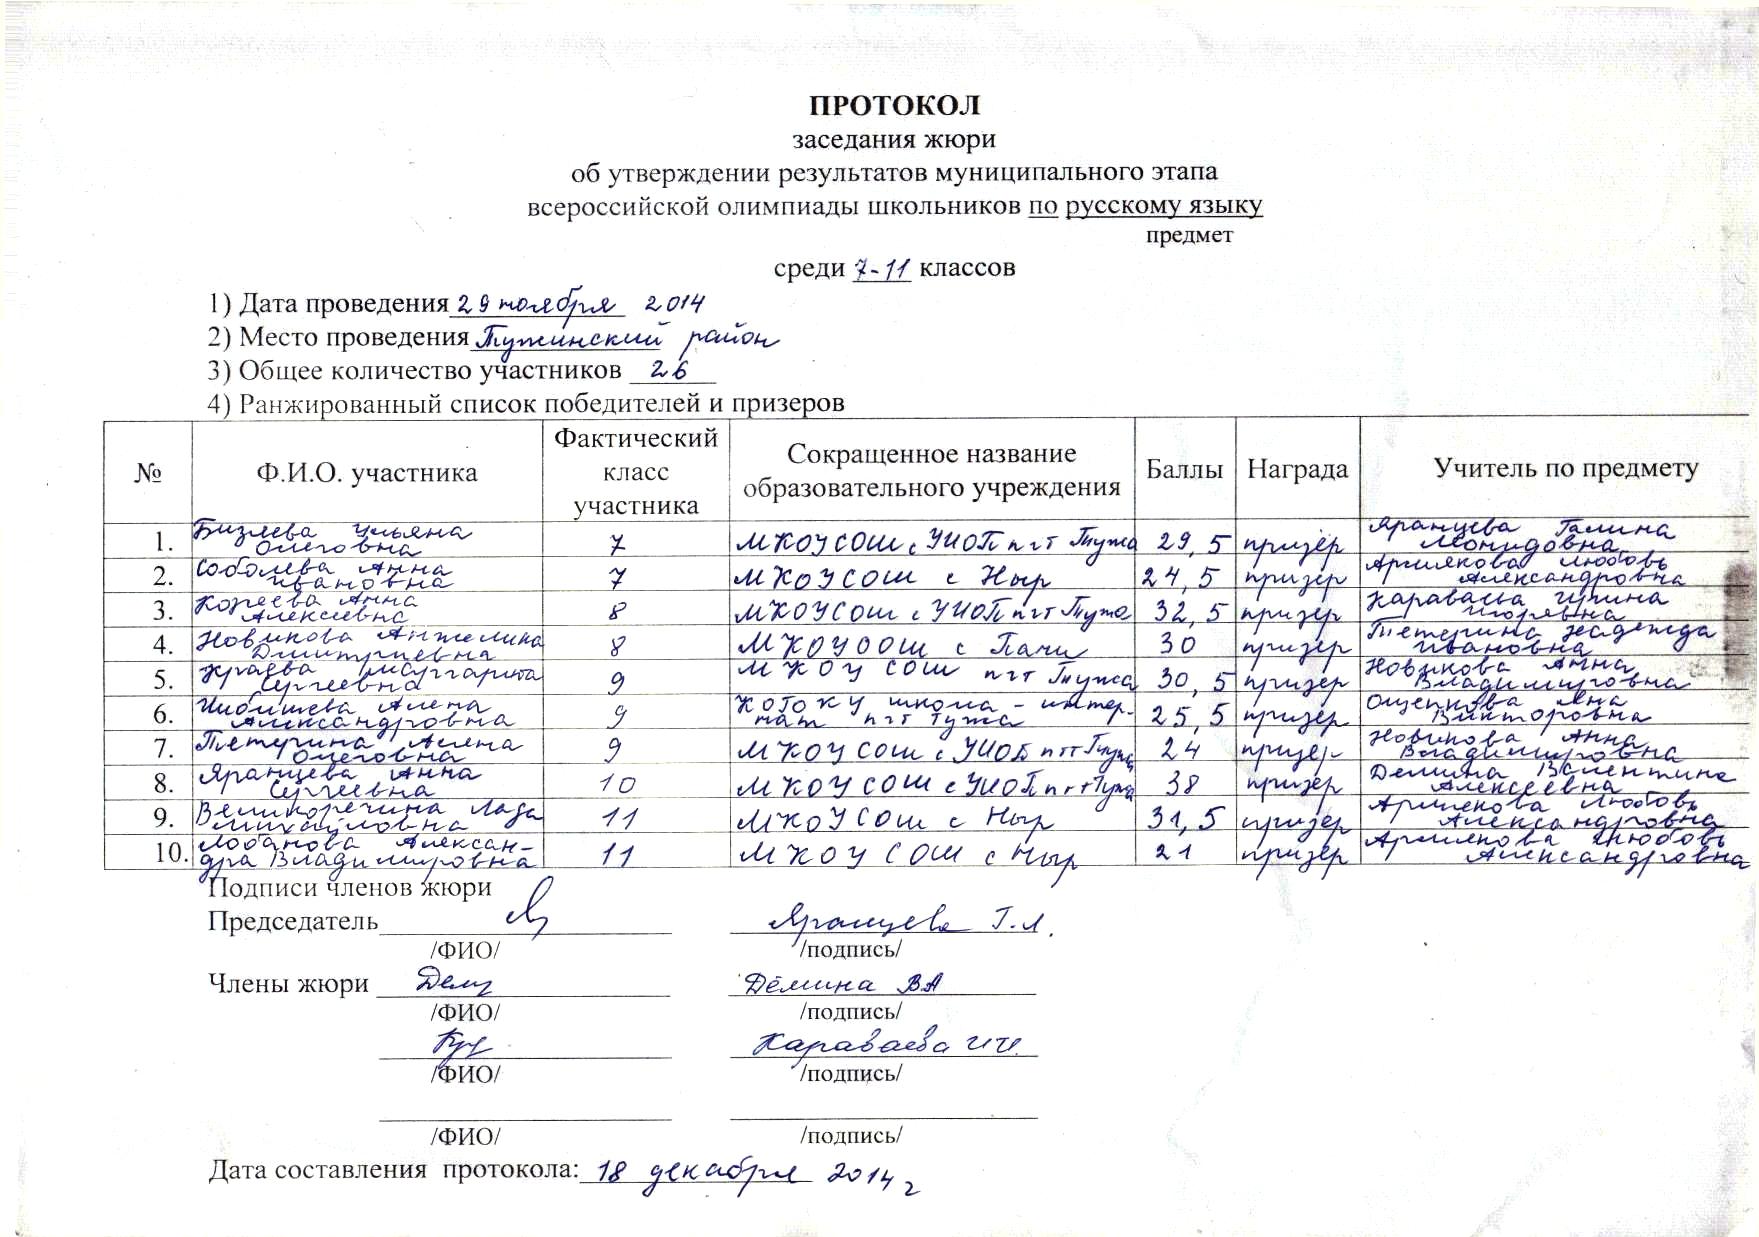 ПРОТОКОЛ
заседания жюри
об утверждении результатов муниципального этапа
всероссийской олимпиады школьников по русскому языку
предмет
среди 7-11 классов
1) Дата проведения 29 ноября 2014
2) Место проведения Тужинский район
3) Общее количество участников 26
4) Ранжированный список победителей и призеров
№ Ф.И.О. участника Фактический класс участника Сокращенное название образовательного учреждения Баллы Награда Учитель по предмету
1. Бизяева Ульяна Олеговна 7 МКОУ СОШ с УИОП пгт Тужа 29,5 призёр Яранцева Галина Леонидовна
2. Соболева Анна Ивановна 7 МКОУ СОШ с Ныр 24,5 призёр Любовь Александровна
3. Анна Алексеевна 8 МКОУ СОШ с УИОП пгт Тужа 32,5 призёр Караваева Ирина Игоревна
4. Новикова Анжелика Дмитриевна 8 МКОУ ООШ с Пачи 30 призёр Тетерина Надежда Ивановна
5. Краева Маргарита Сергеевна 9 МКОУ СОШ пгт Тужа 30,5 призёр Новикова Анна Владимировна
6. Алена Александровна 9 КОГОКУ школа - интер-
нат пгт Тужа 25,5 призёр Яна Викторовна
7. Тетерина Алена Олеговна 9 МКОУ СОШ с УИОП пгт Тужа 24 призёр Новикова Анна Владимировна
8. Яранцева Анна Сергеевна 10 МКОУ СОШ с УИОП пгт Тужа 38 призёр Дёмина Валентина Алексеевна
9. Великоречина Лада Михайловна 11 МКОУ СОШ с Ныр 31,5 призёр Любовь Александровна
10. Лобанова Алексан-
дра Владимировна 11 МКОУ СОШ с Ныр 21 призёр Любовь Александровна
Подписи членов жюри
Председатель Яранцева Г.Л.
/ФИО/ /подпись/
Члены жюри Дёмина ВА
/ФИО/ /подпись/
Караваева И.И.
/ФИО/ /подпись/
/ФИО/ /подпись/
Дата составления протокола: 18 декабря 2014 г